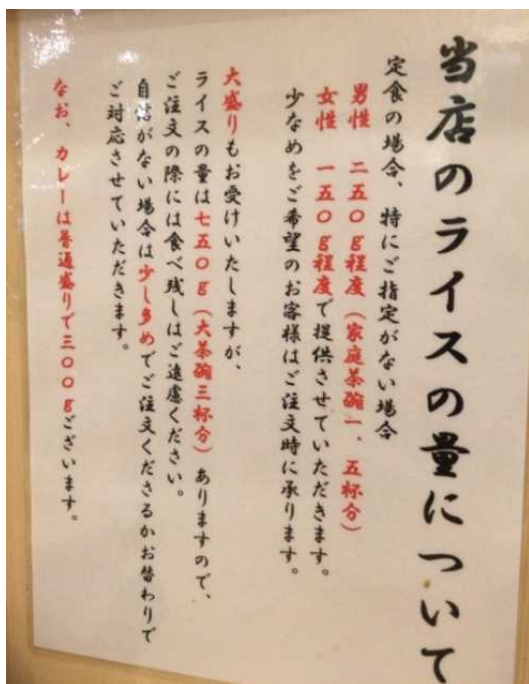 当店のライスの量について
定食の場合、特にご指定がない場合
男性 二五〇g程度(家庭茶碗一、五杯分)
女性 一五〇g程度で提供させていただきます。
少なめをご希望のお客様はご注文時に承ります。
大盛りもお受けいたしますが、
ライスの量は七五〇g(大茶碗三杯分)ありますので、
ご注文の際には食べ残しはご遠慮ください。
自信がない場合は少し多めでご注文くださるかお替わりで
ご対応させていただきます。
なお、カレーは普通盛りで三〇〇gございます。